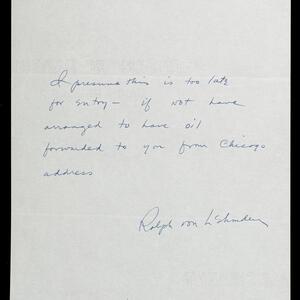 I presume this is too late
for entry — if not have
arranged to have oil
forwarded to you from Chicago
address
Ralph von